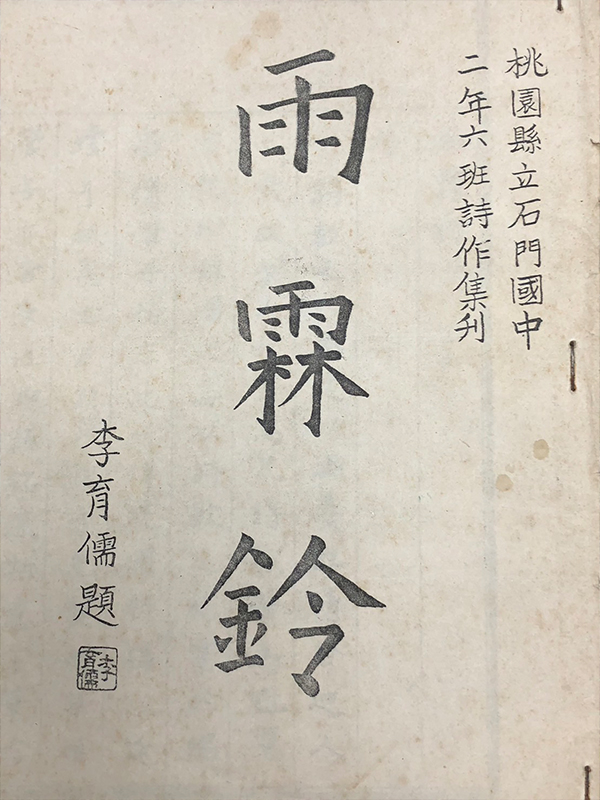 桃園縣立石門國中
二年六班詩作集刋
雨霖鈴
李育儒題
李育儒